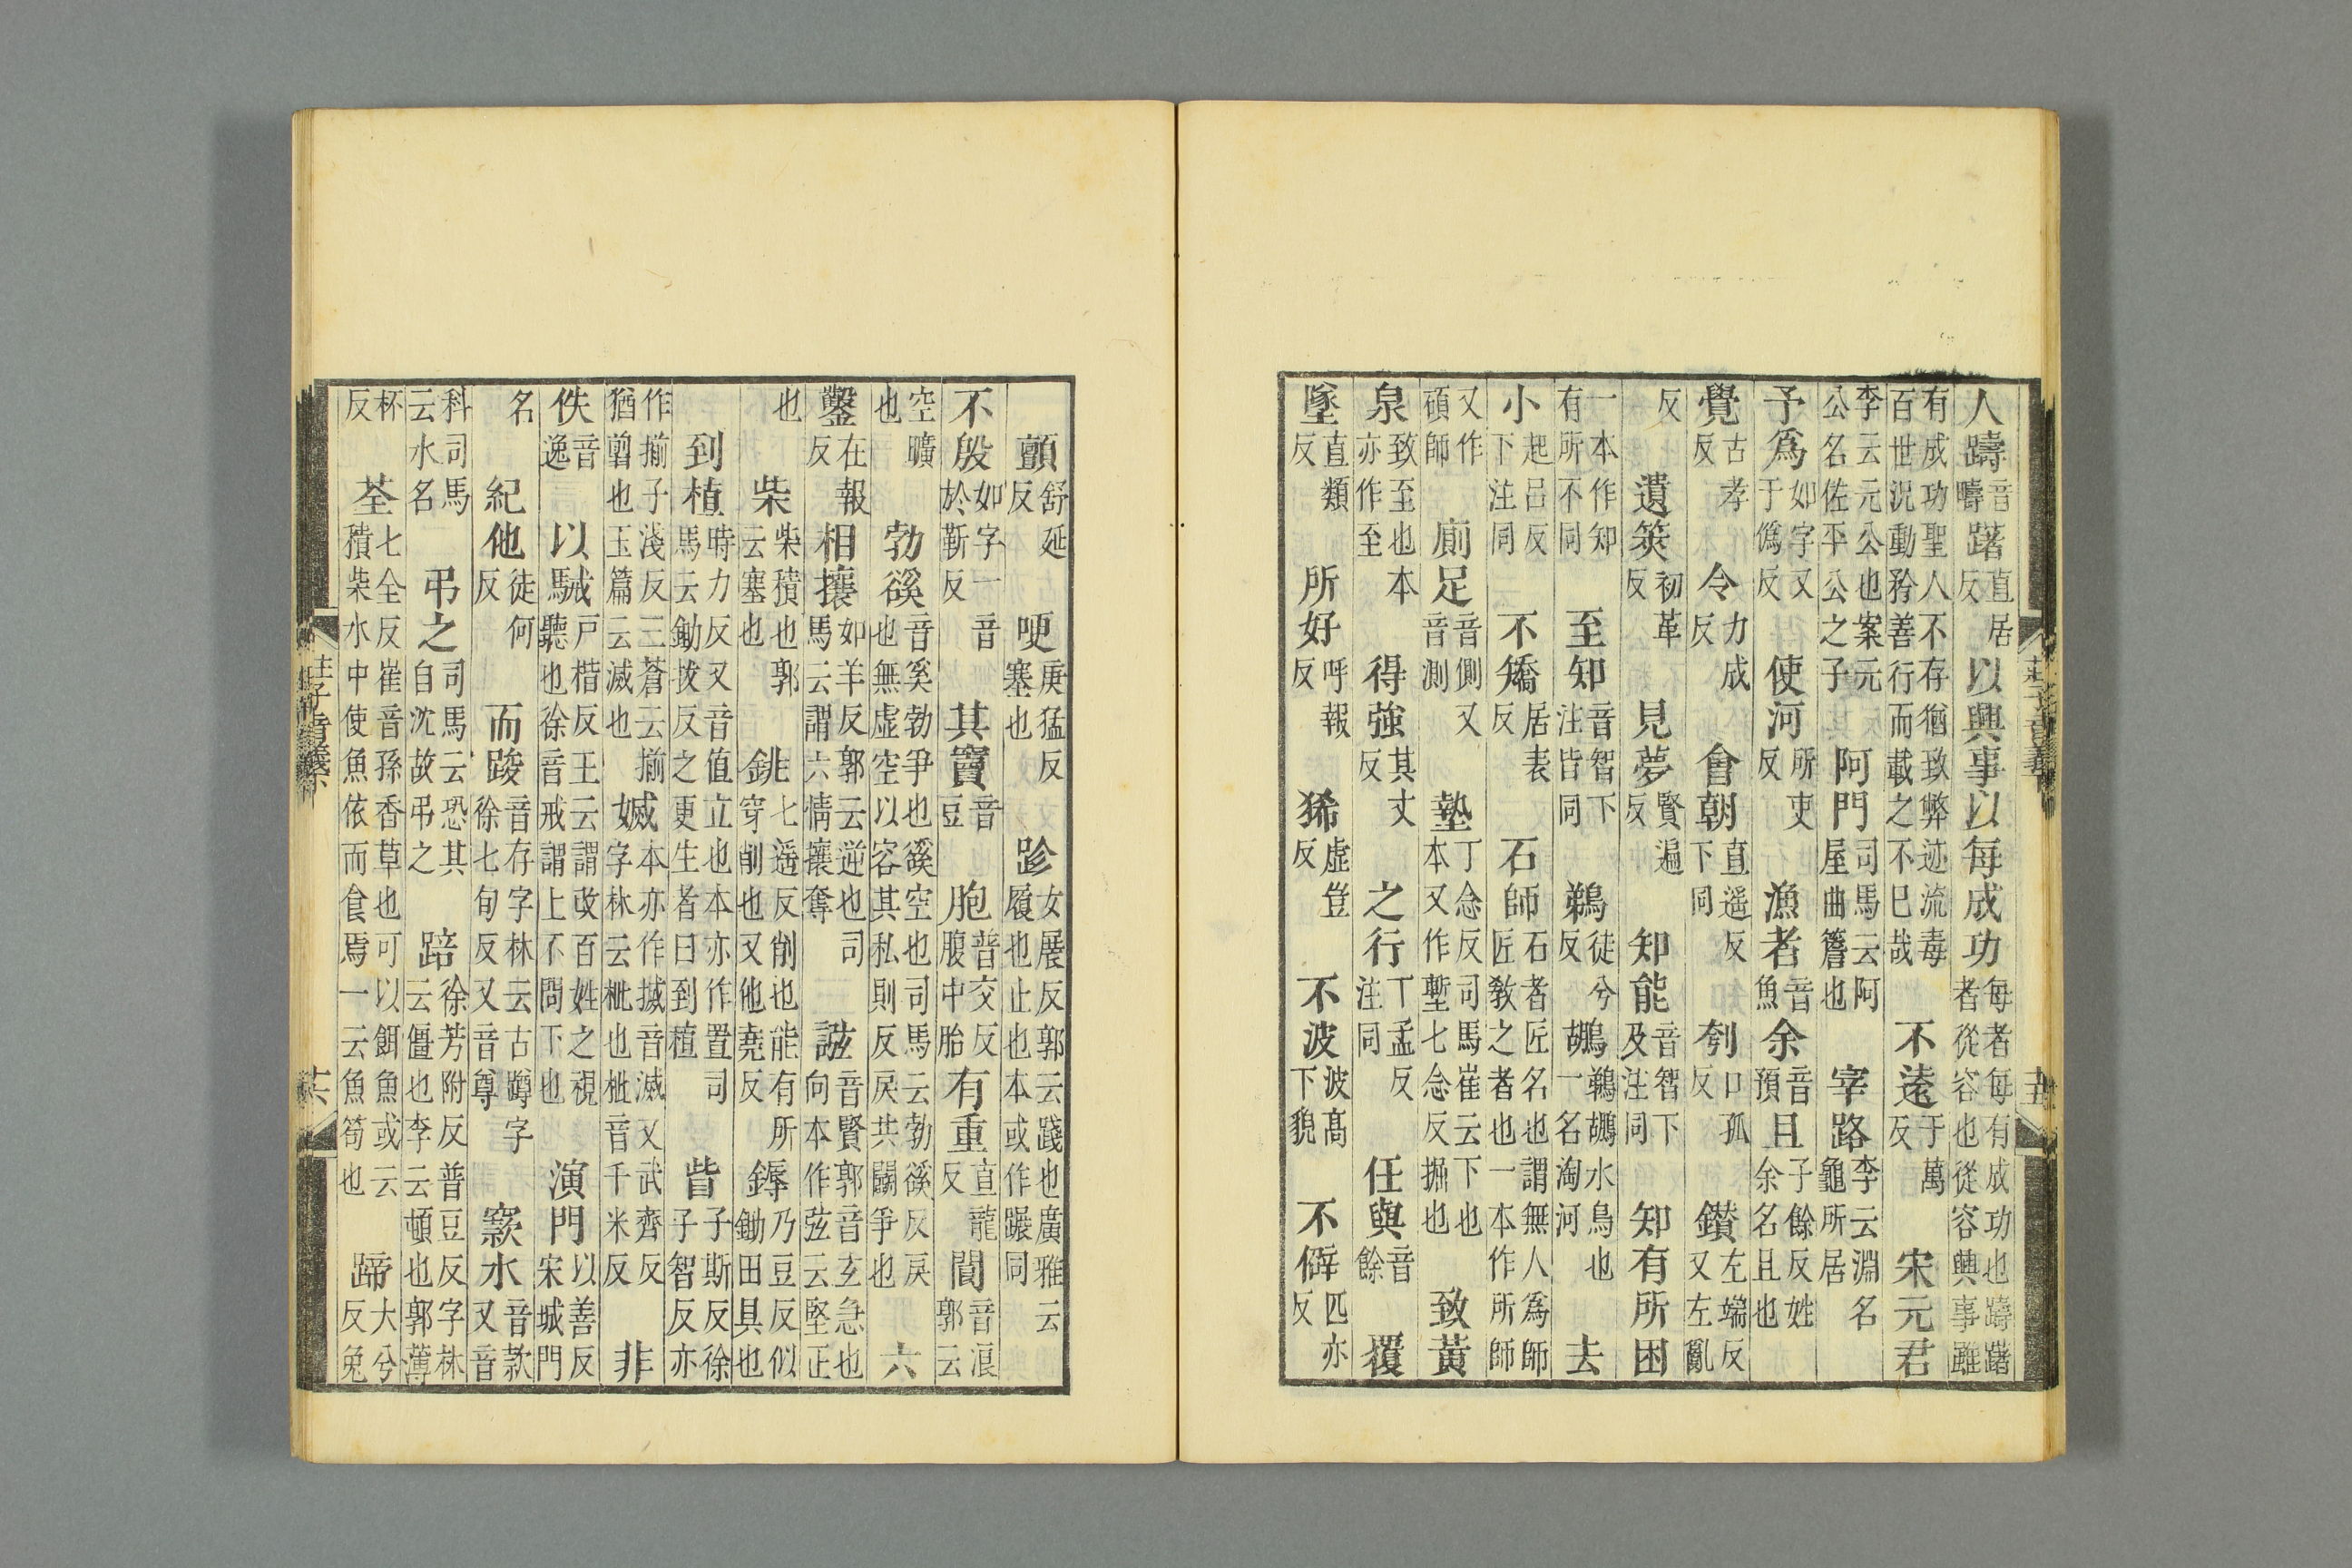 人躊音疇躇直居反以興事以每成功每者每有成功也躊躇者從容也從容興事雖
有成功聖人不存猶致弊迹流毒百世況動矜善行而載之不巳哉不遠于萬反宋元君
李云元公也案元公名佐平公之子阿門司馬云阿屋曲簷也宰路李云淵名龜所居
予爲如字又于僞反使河所吏反漁者音魚余音預且子餘反姓余名且也
覺古孝反令力成反會朝直遥反下同刳口孤反鑚左端反又左亂
反遺筴初革反見夢賢遍反知能音智下及注同知有所困
一本作知有所不同至知音智下注皆同鵜徒兮反鶘鵜鶘水鳥也一名淘河去
小起吕反下注同不矯居表反石師石者匠名也謂無人爲師匠教之者也一本作所師
又作碩師廁足音側又音測墊丁念反司馬崔云下也本又作塹七念反掘也致黃
泉致至也本亦作至得強其丈反之行丁孟反注同任與音餘覆
墜直類反所好呼報反狶虛豈反不波波髙下貌不僻匹亦反
莊子音義下
顫舒延反哽庚猛反塞也跈女展反郭云踐也廣雅云履也止也本或作蹍同
不殷如字一音於靳反其竇音豆胞普交反腹中胎有重直龍反閬音浪郭云
空曠也勃豀音奚勃爭也豀空也司馬云勃豀反戾也無虛空以容其私則反戾共鬭爭也六
鑿在報反相攘如羊反郭云逆也司馬云謂六情攘奪誸音賢郭音玄急也向本作弦云堅正
也柴柴積也郭云塞也銚七遥反削也能有所穿削也又他堯反鎒乃豆反似鋤田具也
到植時力反又音值立也本亦作置司馬云鋤拔反之更生者曰到植眥子斯反徐子智反亦
作揃子淺反三蒼云揃猶翦也玉篇云滅也㛽本亦作搣音滅又武齊反字林云枇也枇音千米反非
佚音逸以駴戶楷反王云謂改百姓之視聽也徐音戒謂上不問下也演門以善反宋城門
名紀他徒何反而踆音存字林云古蹲字徐七旬反又音尊窾水音款又音
科司馬云水名弔之司馬云恐其自沈故弔之踣徐芳附反普豆反字林云僵也李云頓也郭薄
杯反荃七全反崔音孫香草也可以餌魚或云積柴水中使魚依而食焉一云魚笱也蹄大兮反兔
莊子音義下